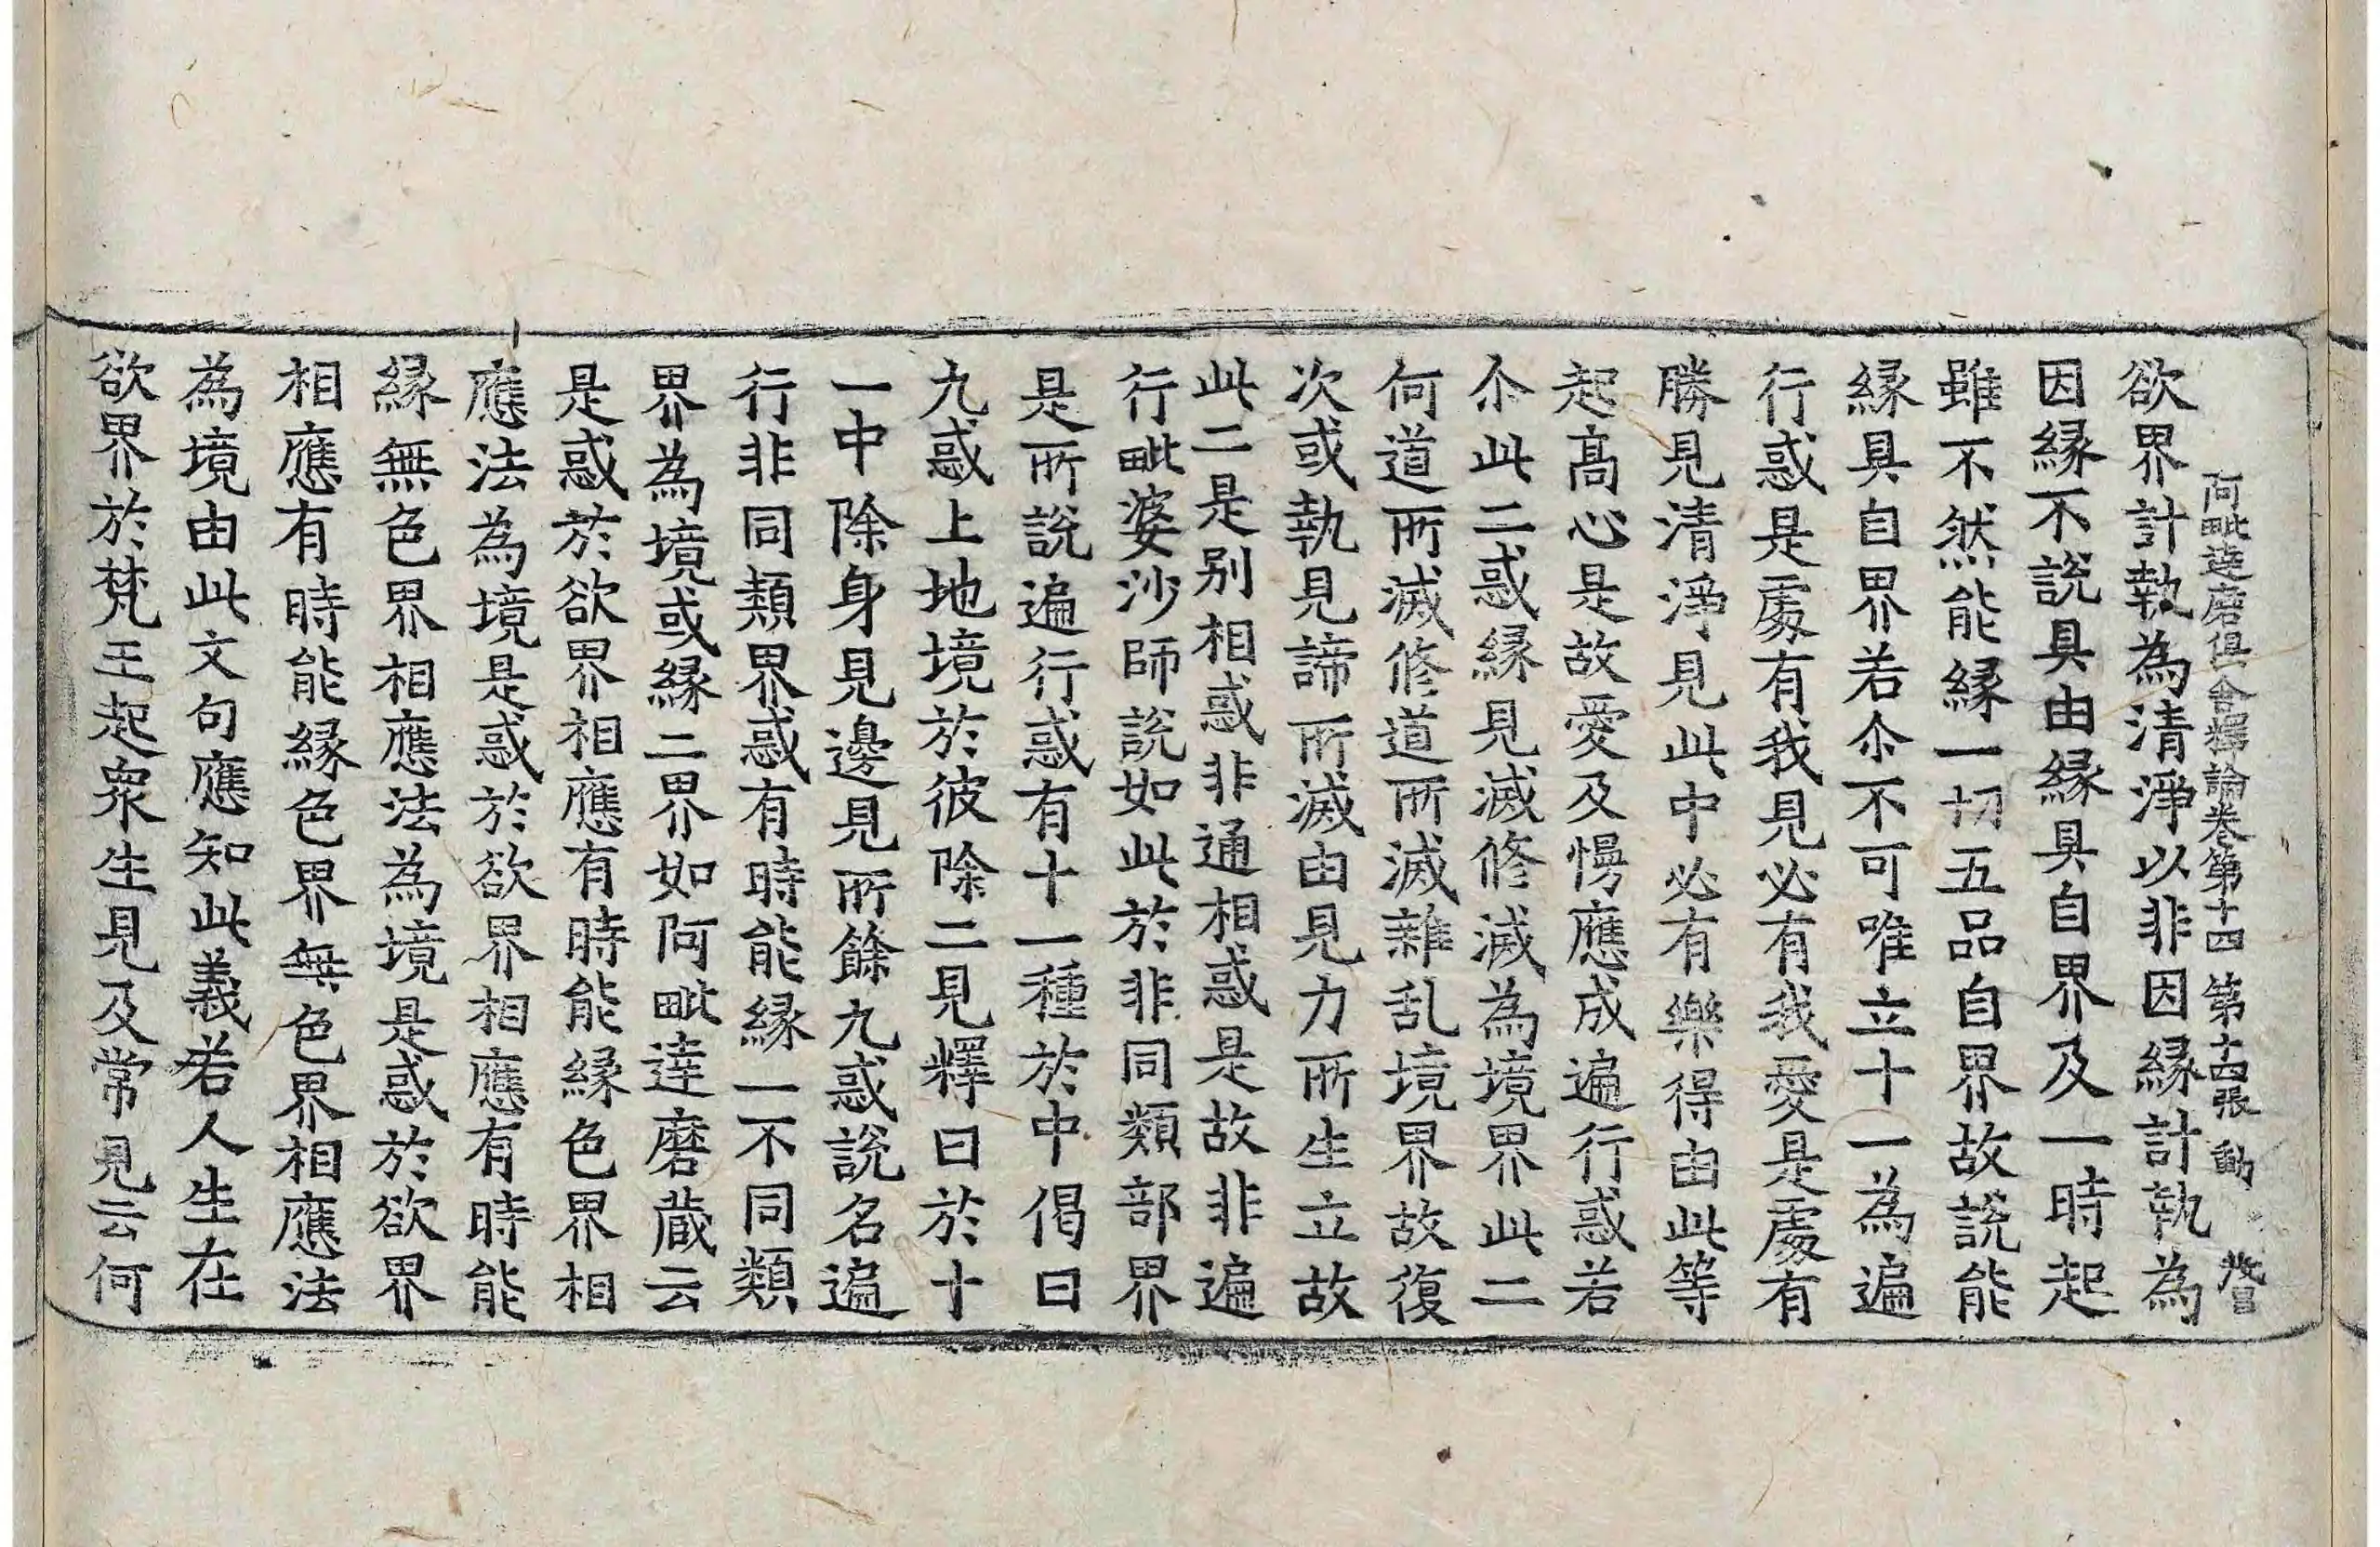 阿毗達磨俱舍釋論卷第十四 第十四張 動
欲界計執為清淨以非因緣計執為
因緣不說具由緣具自界及一時起
雖不然能緣一切五品自界故說能
緣具自界若尒不可唯立十一為遍
行惑是處有我見必有我愛是處有
勝見清淨見此中必有樂得由此等
起高心是故愛及慢應成遍行惑若
尒此二惑緣見滅修滅為境界此二
何道所滅修道所滅雜乱境界故復
次或執見諦所滅由見力所生立故
此二是別相惑非通相惑是故非遍
行毗婆沙師說如此於非同類部界
是所說遍行惑有十一種於中偈曰
九惑上地境於彼除二見釋曰於十
一中除身見邊見所餘九惑說名遍
行非同類界惑有時能緣一不同類
界為境或緣二界如阿毗達磨藏云
是惑於欲界相應有時能緣色界相
應法為境是惑於欲界相應有時能
緣無色界相應法為境是惑於欲界
相應有時能緣色界無色界相應法
為境由此文句應知此義若人生在
欲界於梵王起衆生見及常見云何